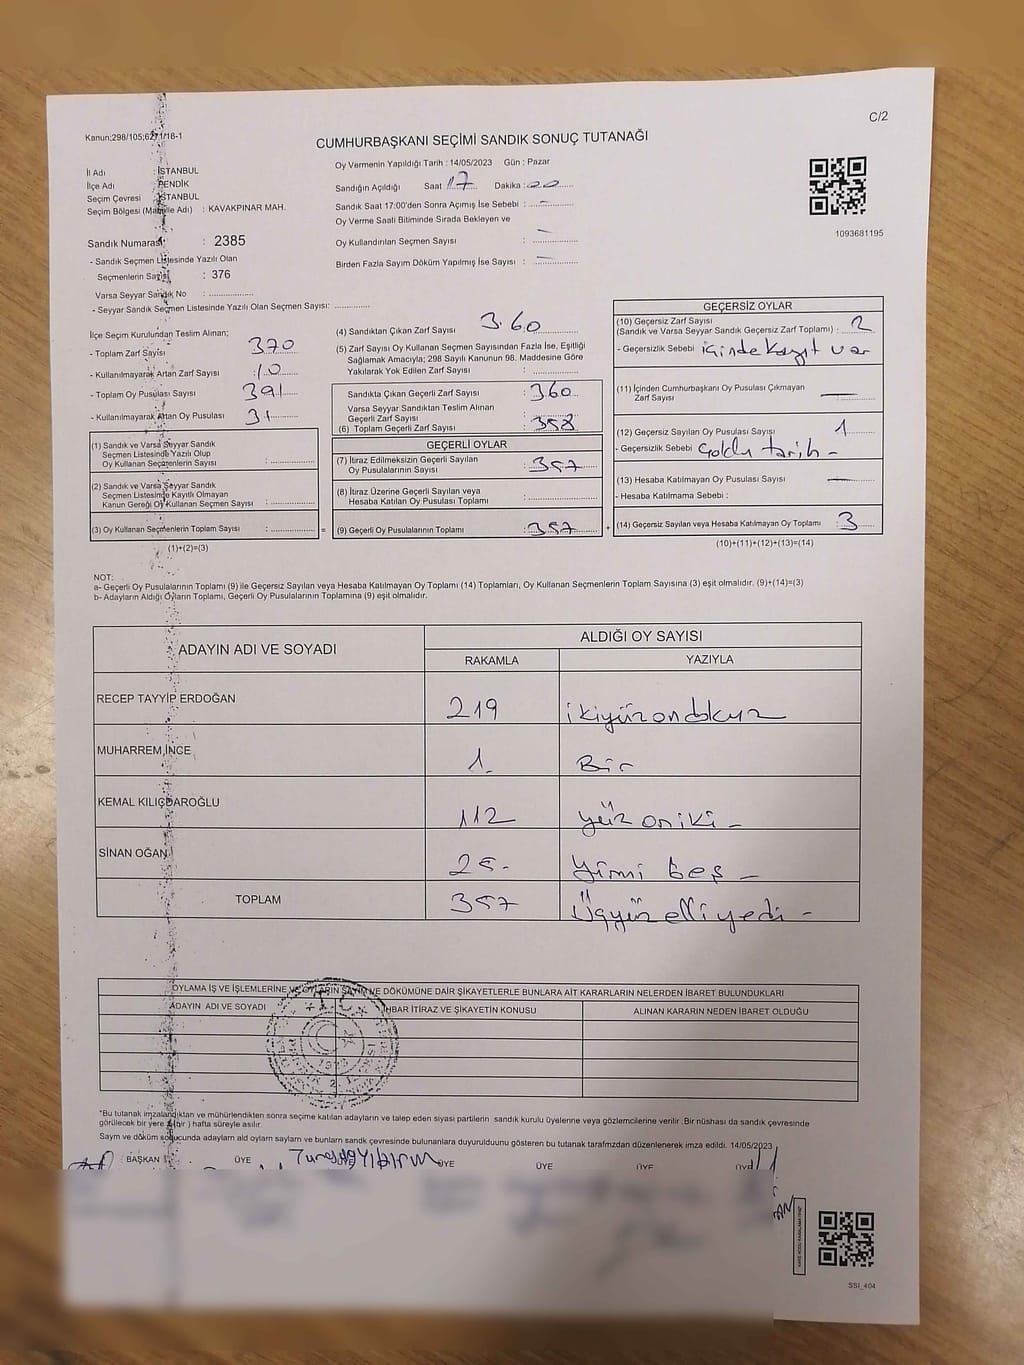 C/2
Kanun;298/105;6271/18-1
CUMHURBAŞKANI SEÇİMİ SANDIK SONUÇ TUTANAĞI
İl Adı : İSTANBUL
İlçe Adı PENDİK
Seçim Çevresi İSTANBUL
Seçim Bölgesi (Mahalle Adı) : KAVAKPINAR MAH.
Sandık Numarası : 2385
- Sandık Seçmen Listesinde Yazılı Olan
Seçmenlerin Sayısı : 376
Varsa Seyyar Sandık No : ..............
- Seyyar Sandık Seçmen Listesinde Yazılı Olan Seçmen Sayısı: ............
Oy Vermenin Yapıldığı Tarih : 14/05/2023 Gün : Pazar
Sandığın Açıldığı Saat 17 Dakika : 00
Sandık Saat 17:00'den Sonra Açımış İse Sebebi : -
Oy Verme Saati Bitiminde Sırada Bekleyen ve
Oy Kullandırılan Seçmen Sayısı : -
Birden Fazla Sayım Döküm Yapılmış İse Sayısı : -
1093681195
İlçe Seçim Kurulundan Teslim Alınan;
- Toplam Zarf Sayısı 370
- Kullanılmayarak Artan Zarf Sayısı : 10
- Toplam Oy Pusulası Sayısı 391
- Kullanılmayarak Artan Oy Pusulası 31
(1) Sandık ve Varsa Seyyar Sandık
Seçmen Listesinde Yazılı Olup
Oy Kullanan Seçmenlerin Sayısı :
(2) Sandık ve Varsa Seyyar Sandık
Seçmen Listesinde Kayıtlı Olmayan
Kanun Gereği Oy Kullanan Seçmen Sayısı :
(3) Oy Kullanan Seçmenlerin Toplam Sayısı : =
(1)+(2)=(3)
(4) Sandıktan Çıkan Zarf Sayısı 360
(5) Zarf Sayısı Oy Kullanan Seçmen Sayısından Fazla İse, Eşitliği
Sağlamak Amacıyla; 298 Sayılı Kanunun 98. Maddesine Göre
Yakılarak Yok Edilen Zarf Sayısı :
Sandıkta Çıkan Geçerli Zarf Sayısı : 360
Varsa Seyyar Sandıktan Teslim Alınan
Geçerli Zarf Sayısı
(6) Toplam Geçerli Zarf Sayısı : 358
GEÇERLİ OYLAR
(7) İtiraz Edilmeksizin Geçerli Sayılan
Oy Pusulalarının Sayısı : 357
(8) İtiraz Üzerine Geçerli Sayılan veya
Hesaba Katılan Oy Pusulası Toplamı :
(9) Geçerli Oy Pusulalarının Toplamı : 357 +
GEÇERSİZ OYLAR
(10) Geçersiz Zarf Sayısı
(Sandık ve Varsa Seyyar Sandık Geçersiz Zarf Toplamı) : 2
- Geçersizlik Sebebi içinde kayıt var
(11) İçinden Cumhurbaşkanı Oy Pusulası Çıkmayan
Zarf Sayısı -
(12) Geçersiz Sayılan Oy Pusulası Sayısı 1
- Geçersizlik Sebebi
(13) Hesaba Katılmayan Oy Pusulası Sayısı -
- Hesaba Katılmama Sebebi :
(14) Geçersiz Sayılan veya Hesaba Katılmayan Oy Toplamı : 3
(10)+(11)+(12)+(13)=(14)
NOT:
a- Geçerli Oy Pusulalarının Toplamı (9) ile Geçersiz Sayılan veya Hesaba Katılmayan Oy Toplamı (14) Toplamları, Oy Kullanan Seçmenlerin Toplam Sayısına (3) eşit olmalıdır. (9)+(14)=(3)
b- Adayların Aldığı Oyların Toplamı, Geçerli Oy Pusulalarının Toplamına (9) eşit olmalıdır.
ADAYIN ADI VE SOYADI ALDIĞI OY SAYISI
RAKAMLA YAZIYLA
RECEP TAYYİP ERDOĞAN 219 ikiyüzondokuz
MUHARREM İNCE 1. Bir
KEMAL KILIÇDAROĞLU 112 yüz oniki -
SİNAN OĞAN 25- Yirmi beş -
TOPLAM 357 Üçyüz elli yedi -
OYLAMA İŞ VE İŞLEMLERİNE VE OYLARIN SAYIM VE DÖKÜMÜNE DAİR ŞİKAYETLERLE BUNLARA AİT KARARLARIN NELERDEN İBARET BULUNDUKLARI
ADAYIN ADI VE SOYADI İHBAR İTİRAZ VE ŞİKAYETİN KONUSU ALINAN KARARIN NEDEN İBARET OLDUĞU
*Bu tutanak imzalandıktan ve mühürlendikten sonra seçime katılan adayların ve talep eden siyasi partilerin sandık kurulu üyelerine veya gözlemcilerine verilir .Bir nüshası da sandık çevresinde
görülecek bir yere bir ) hafta süreyle asılır.
Saym ve döküm sonucunda adaylarn ald oylarn saylarn ve bunlarn sandk çevresinde bulunanlara duyurulduunu gösteren bu tutanak tarafmzdan düzenlenerek imza edildi. 14/05/2023
BAŞKAN ÜYE YILDIRIM ÜYE ÜYE ÜYE
SSI_404